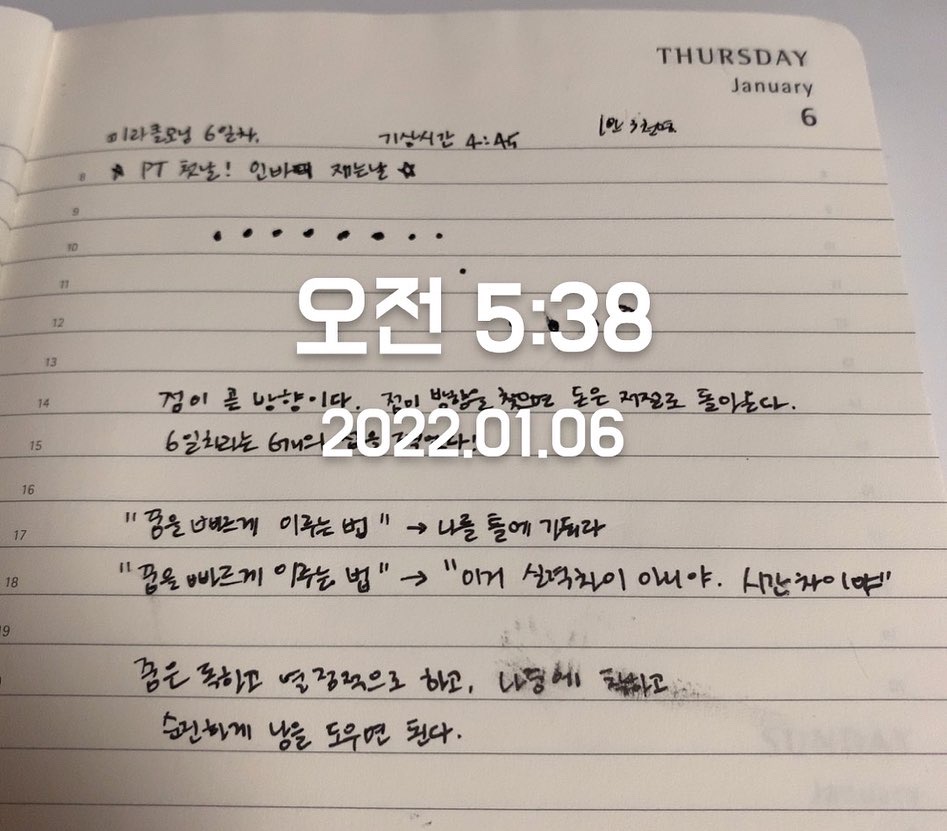 THURSDAY
January
6
미라클모닝 6일차. 기상시간 4:45 1만 3천명
8 ☆ PT 첫날! 인바디 재는날 ☆
9
10
11
오전 5:38
12
13
14 점이 곧 방향이다. 점이 방향을 찾으면 돈은 저절로 돌아온다.
2022.01.06
15 6일차라는 6개의
16
17 "꿈을 빠르게 이루는 법" → 나를 틀에 가둬라
18 "꿈을 빠르게 이루는 법" → "이거 실력차이 아니야. 시간차이야"
19
꿈은 독하고 열정적으로 하고, 나중에 착하고
순진하게 남을 도우면 된다.
SUNDAY
January